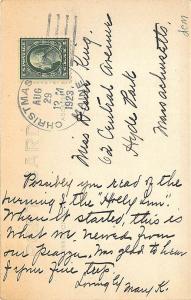 CHRISTMAS
AUG
29
12 M
1923
MAINE
Miss Bessie King,
62 Central Avenue
Hyde Park
Massachusetts.
Possibly you read of the
burning of the "Holly Inn".
Where it started, this is
what we viewed from
our piazza. Was glad to hear
of your fine trip.
Lovingly Mary K.